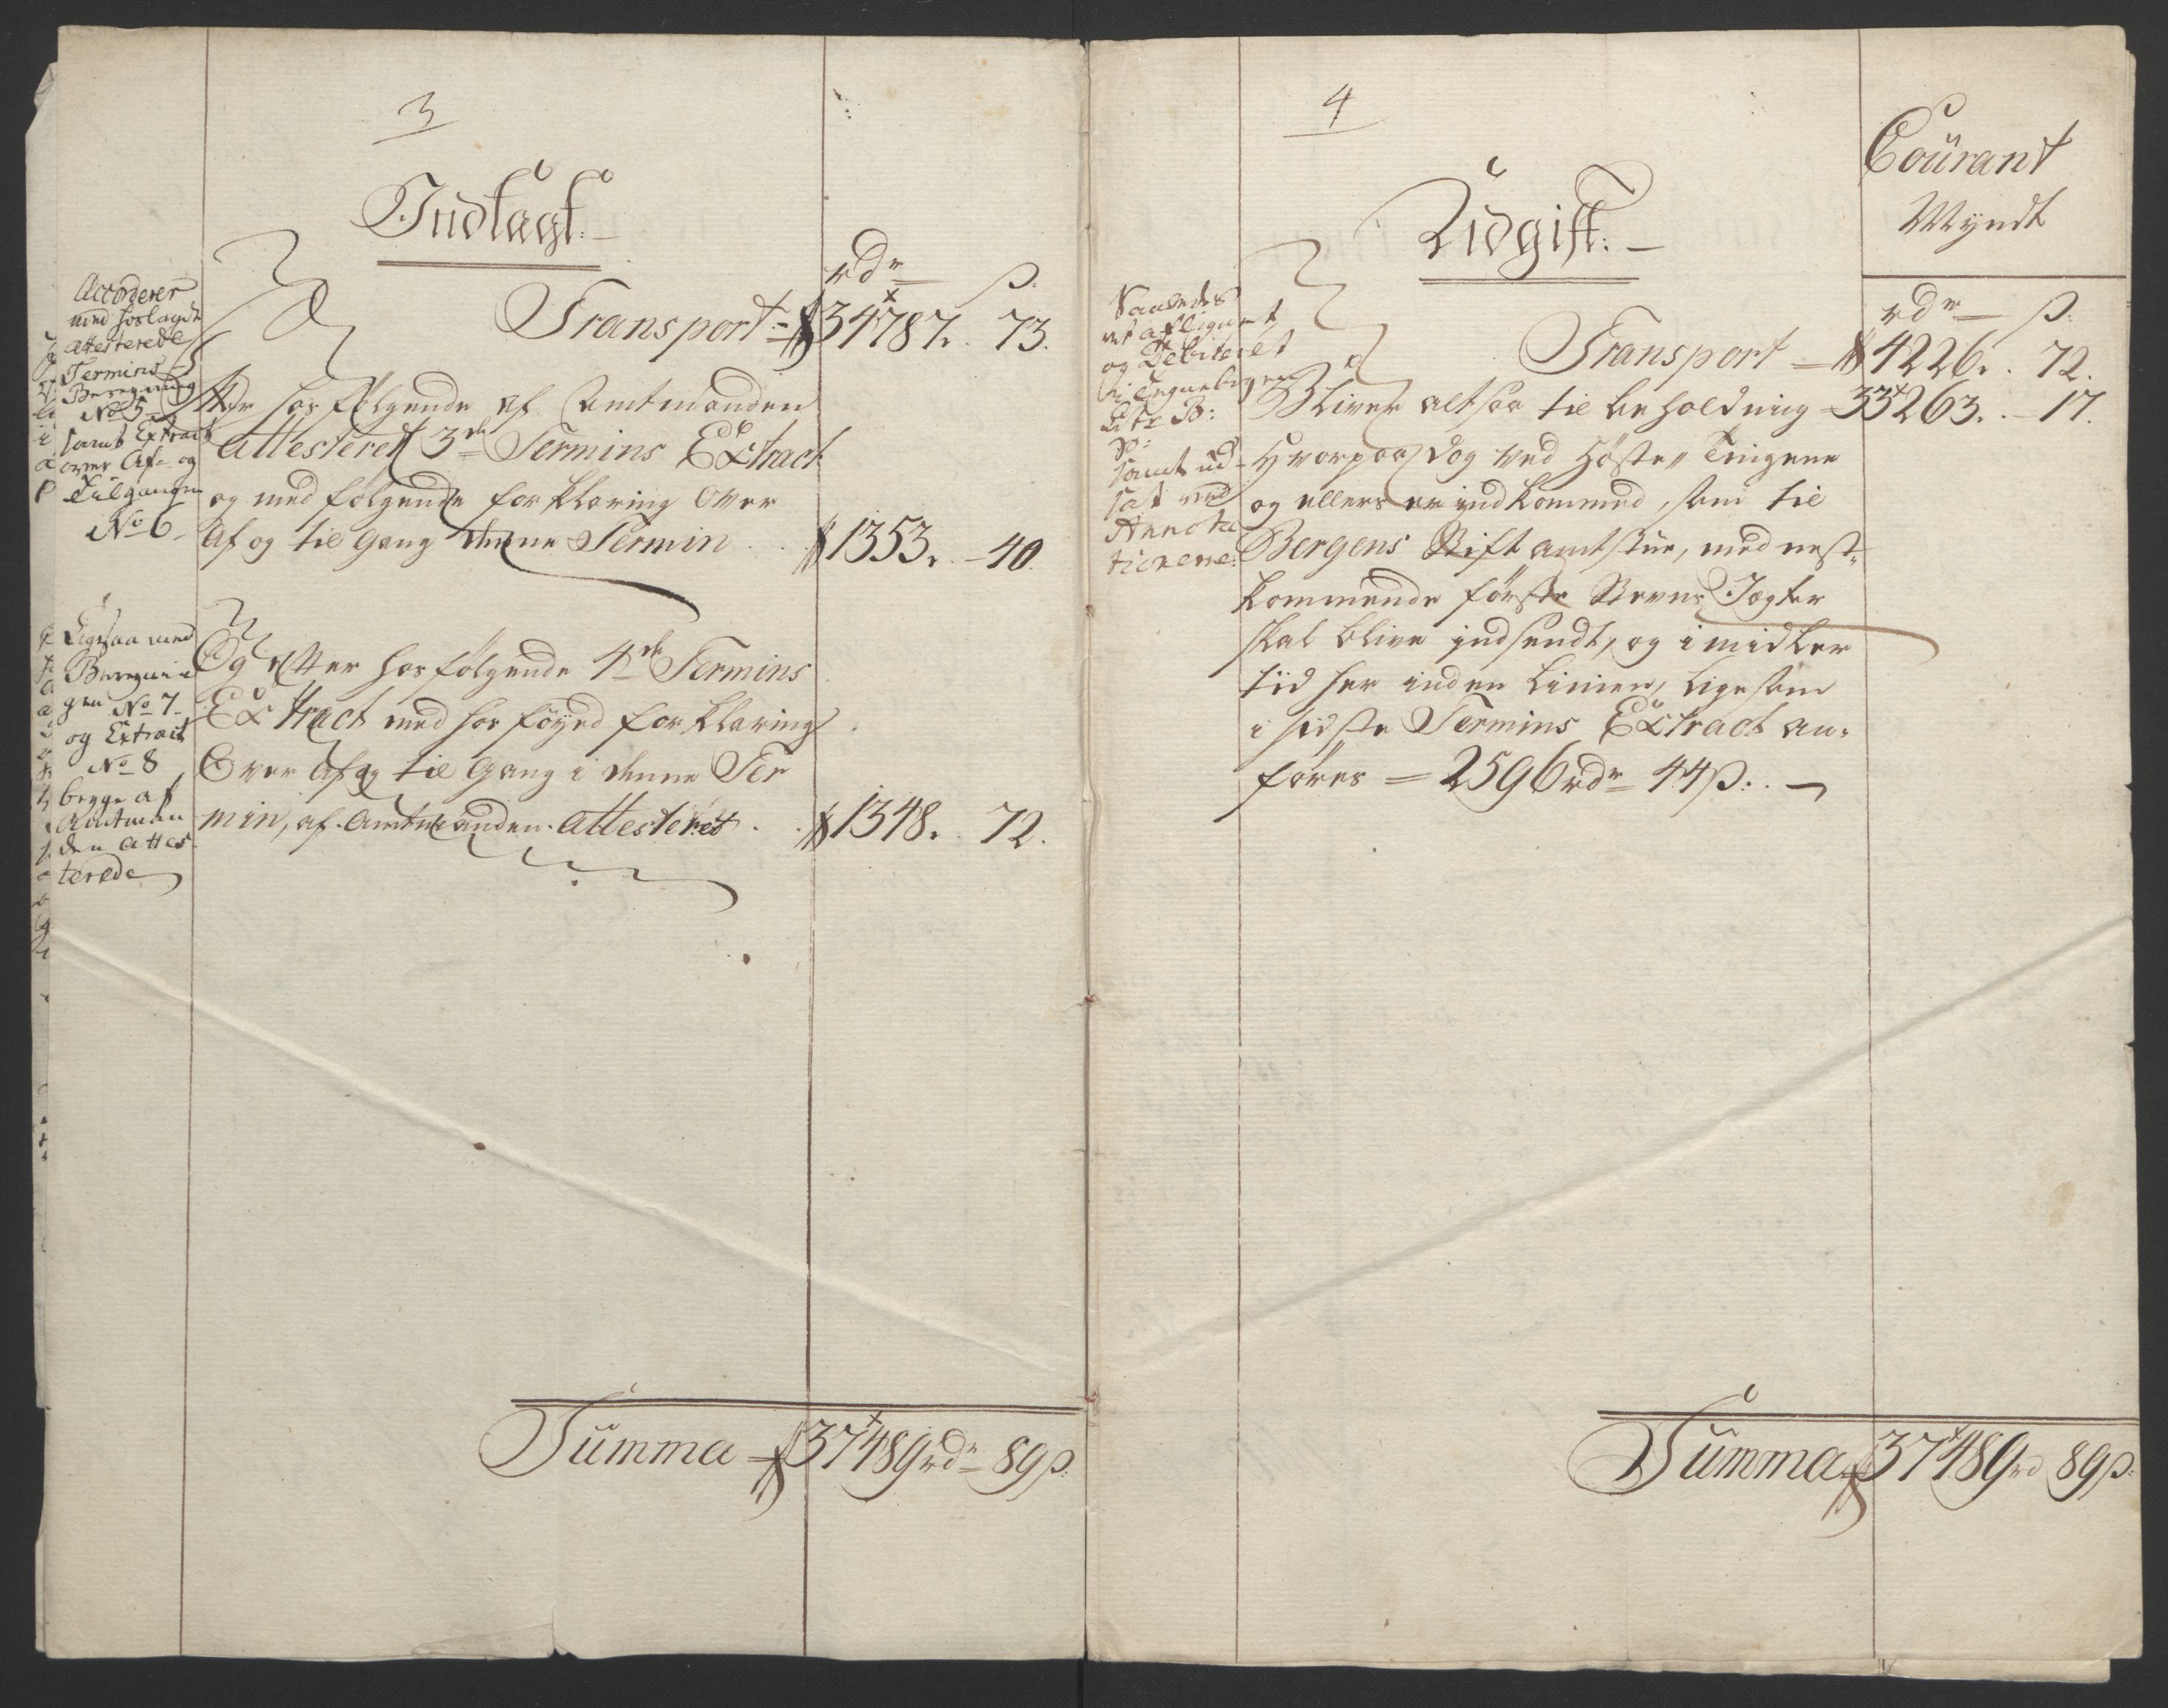 3
Indtægt:
rdr ß:
Accorderer
med hoslagde
attesterede
Termins
Beregning
No 5
samt Extract
over Af- og
Tilgangen
No 6
Transport = 34787. 73.
Efter hosfølgende af Amtmanden
attesteret 3de Termins Extract
og med følgende forklaring over
af og til gang denne Termin 1353. 40.
Ligesaa med
Beregnin
gen No 7
og Extract
No 8
begge af
Amtman
den attes
terede
Og efter hosfølgende 4de Termins
Extract med hosføyed forklaring
Over af og til gang i denne Ter
min, af Amtmanden attesteret 1348. 72.
Summa 37489 rdr 89 ß:
4
Udgift:
Courant
Myndt
rdr ß:
Saaledes
ret aflignet
og Debiteret
i Regnebogen
Litr B:
samt ud
sat ved
Annota
tionerne:
Transport 4226. 72.
Bliver altsaa til beholdning = 33263. 17.
Hvorpaa dog ved Høste Tingene
og ellers er indkommed, som til
Bergens Stiftamtstue, med nest-
kommende første Stevne Jægter
skal blive indsendt, og imidler
tid her inden Linien, ligesom
i sidste Termins Extract an-
føres = 2596 rdr 44 ß:
Summa 37489 rd 89 ß: